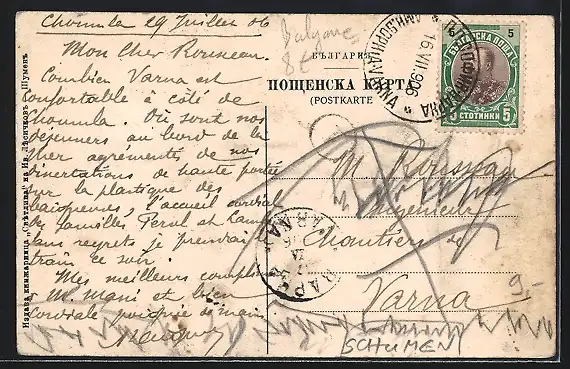 Choumla 29 Juillet 06
Mon Cher Rousseau.
Combien Varna est
confortable à côté de
Choumla. Où sont nos
déjeuners au bord de la
Mer agrémentés de nos
dissertations de haute portée
sur la plastique des
baigneuses, l'accueil cordial
des familles et
sans regrets je prendrai le
train ce soir.
Mes meilleurs compliments
M. et bien
Cordiale poignée de main
Bulgarie
8£
БЪЛГАРИЯ
ПОЩЕНСКА КАРТА
(POSTKARTE)
БЪЛГАРСКА ПОЩА
5 5
5 СТОТИНКИ 5
16 VII 906
ВАРНА
VARNA
M. Rousseau
Ingénieur
Chantiers de
Varna
9,-
SCHUMEN
Издава книжарница „Свѣтлина“ на Ив. Лѣсичковъ. Шуменъ